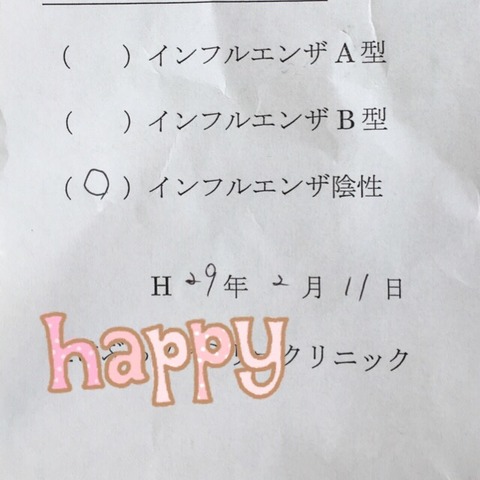 ( ) インフルエンザA型
( ) インフルエンザB型
(○) インフルエンザ陰性
H 29年 2月 11日
happy
クリニック